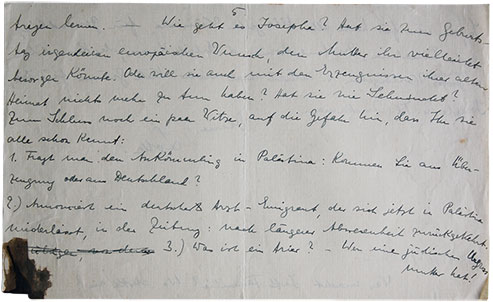 5
tragen lernen. — Wie geht es Josepha? Hat sie zum Geburts-
tag irgendeinen europäischen Wunsch, den Mutter ihr vielleicht
besorgen könnte. Oder will sie auch mit den Erzeugnissen ihrer alten
Heimat nichts mehr zu tun haben? Hat sie nie Sehnsucht?
Zum Schluss noch ein paar Witze, auf die Gefahr hin, dass Ihr sie
alle schon kennt:
1. Fragt man den Ankömmling in Palästina: Kommen Sie aus Über-
zeugung oder aus Deutschland?
2.) Annonciert ein deutscher Arzt-Emigrant, der sich jetzt in Palästina
niederlässt, in der Zeitung: nach längerer Abwesenheit zurückgekehrt.
3.) Was ist ein Arier? – Wer eine jüdische Urgross
mutter hat!